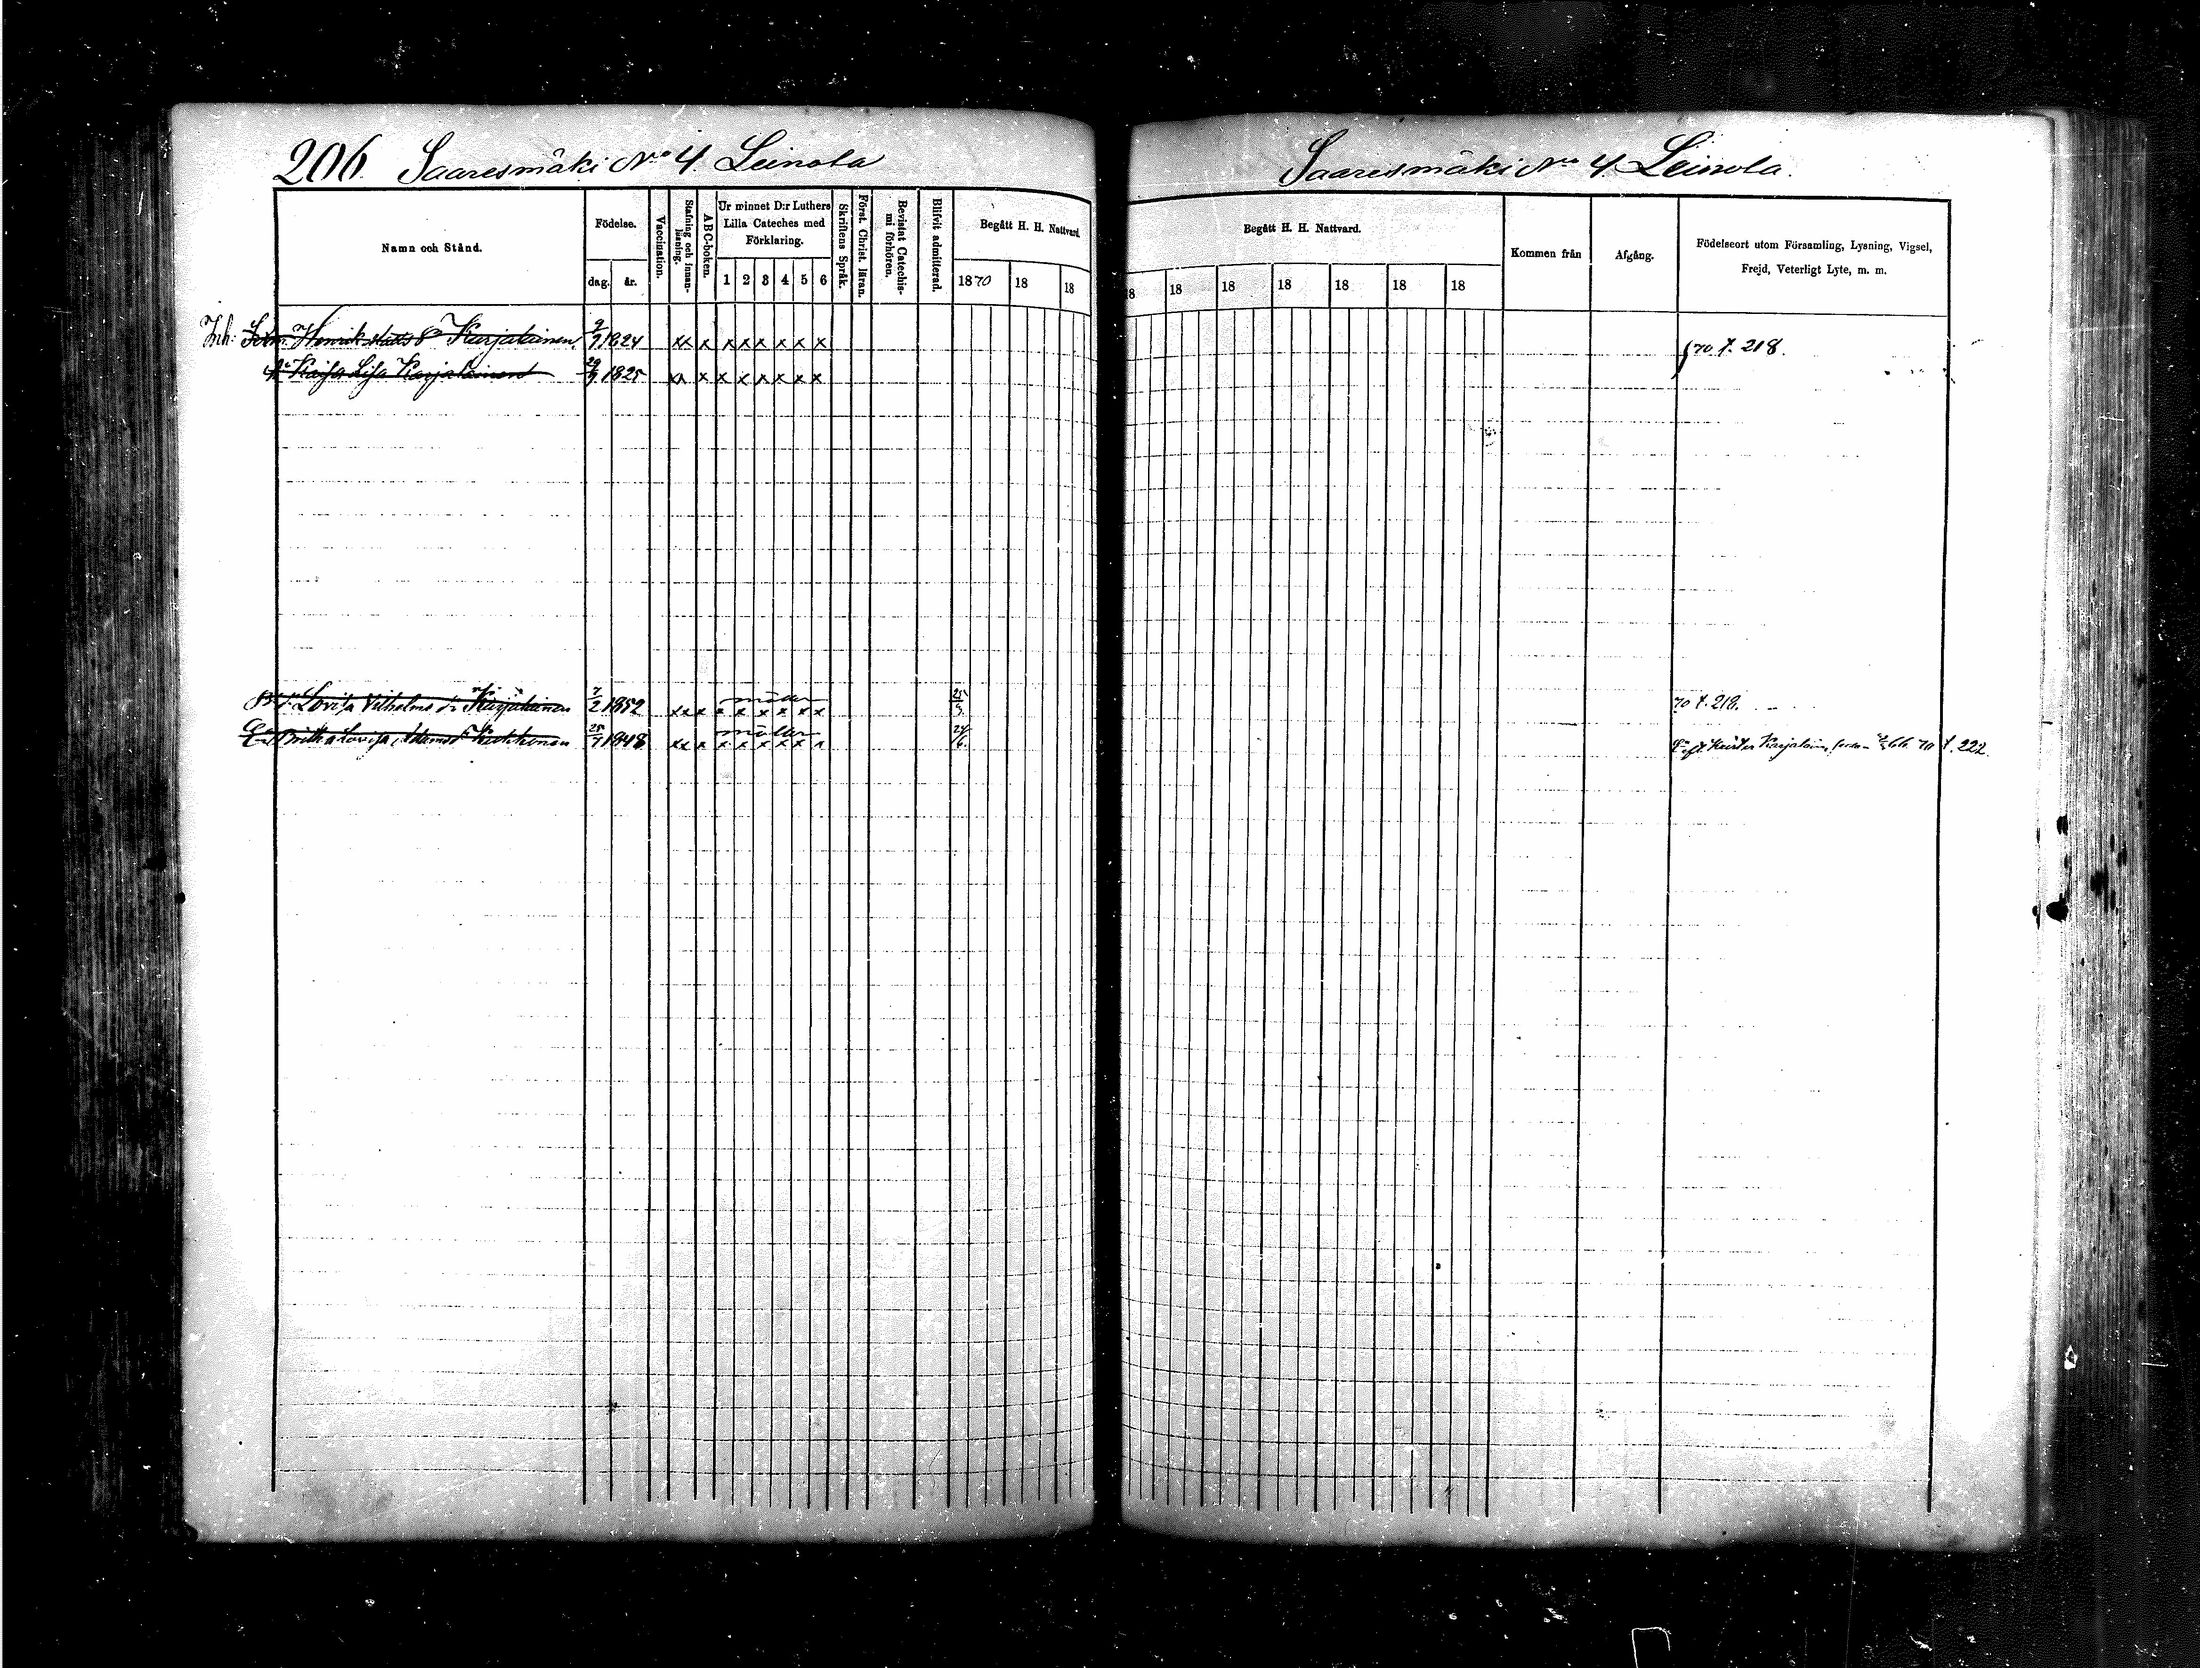 206. Saaresmäki No 4. Leinola
Saaresmäki No 4. Leinola.
Namn och Stånd.
Födelse.
dag. år.
Vaccination.
Stafning och innan-läsning.
ABC-boken.
Ur minnet D:r Luthers
Lilla Cateches med
Förklaring.
1 2 3 4 5 6
Skriftens Språk.
Först. Christ. läran.
Bevistat Catechis-mi förhören.
Blifvit admitterad.
Begått H. H. Nattvard.
1870 18 18
Begått H. H. Nattvard.
18 18 18 18 18 18 18
Kommen från
Afgång.
Födelseort utom Församling, Lysning, Vigsel,
Frejd, Veterligt Lyte, m. m.
Inh: Henrik Karjalainen. 9/9 1824 xx x x x x x x x
70 f. 218.
Kaisa Lisa Karjalainen 29/9 1825 xx x x x x x x x
Lovisa Vilhelmsdr Karjalainen 7/2 1852 xx x x x x x x x 25/9.
70 f. 218.
Lovisa Adamsdr 25/7 1848 xx x x x x x x x 24/6.
Karjalainen 70 f. 222.